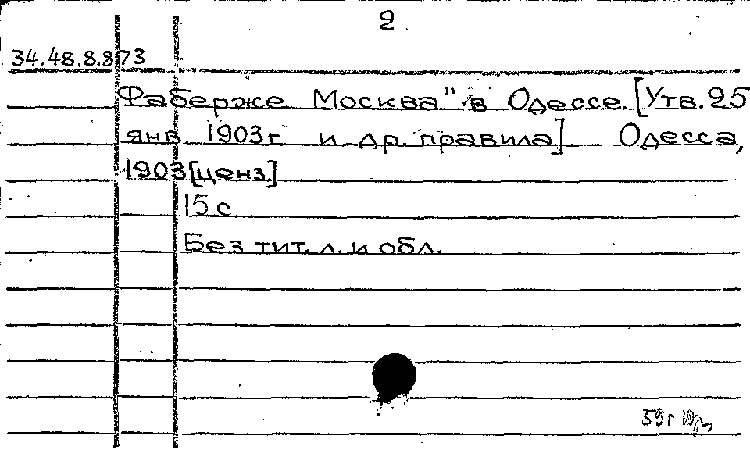 2
34.48.8.873
Фаберже Москва" в Одессе. [Утв. 25
янв 1903г и др. правила] Одесса,
1903 [ценз]
15 с
Без тит. л. и обл.
59г